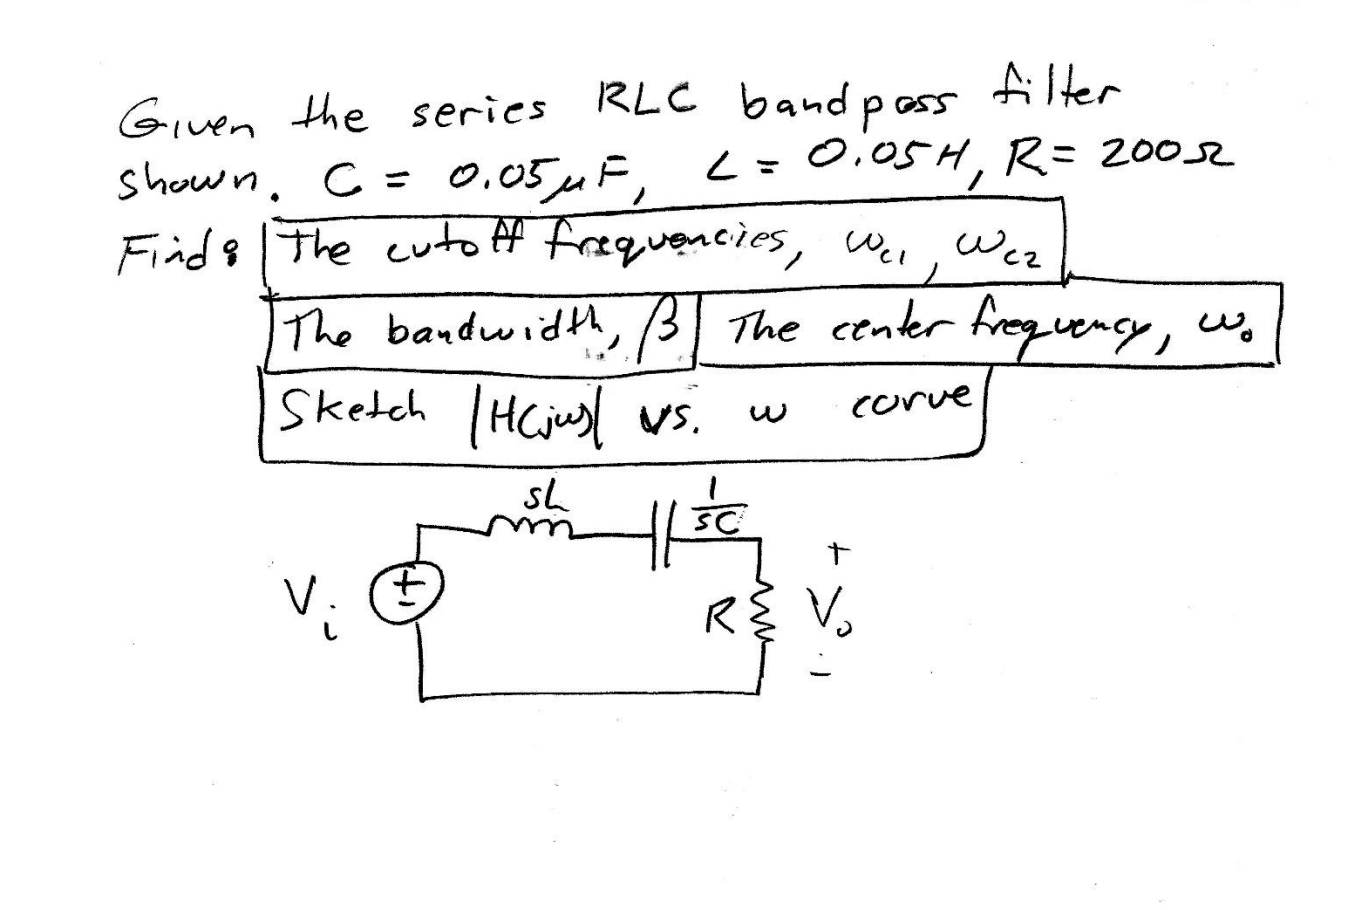 Given the series RLC bandpass filter
shown. C = 0.05μF, L = 0.05H, R = 200Ω
Find: The cutoff frequencies, ωc1, ωc2
The bandwidth, β The center frequency, ω₀
Sketch |H(jω)| vs. ω curve
sL
1/sC
+
Vi + −
R
Vo
−